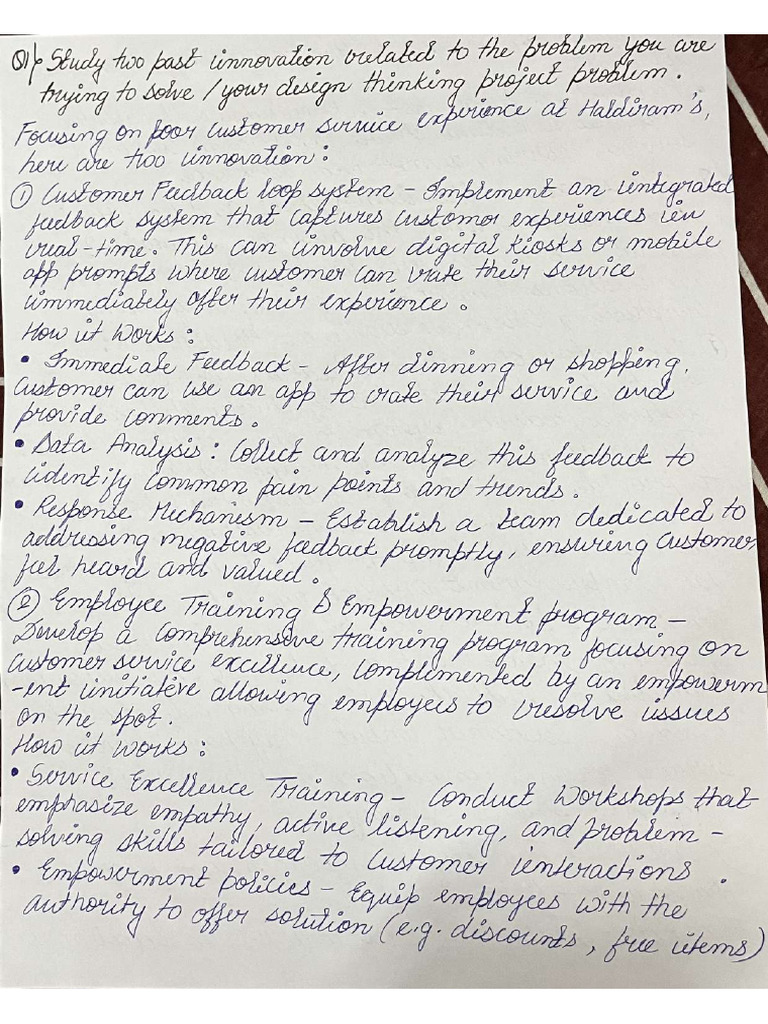 Q1) Study two past innovation related to the problem you are
trying to solve / your design thinking project problem.
Focusing on poor customer service experience at Haldiram's,
here are two innovation :
① Customer Feedback loop system - Implement an integrated
feedback system that captures customer experiences in
real-time. This can involve digital kiosks or mobile
app prompts where customer can rate their service
immediately after their experience .
How it Works :
• Immediate Feedback - After dinning or shopping,
customer can use an app to rate their service and
provide comments .
• Data Analysis : Collect and analyze this feedback to
identify common pain points and trends .
• Response Mechanism - Establish a team dedicated to
addressing negative feedback promptly, ensuring customer
feel heard and valued .
② Employee Training & Empowerment program -
Develop a comprehensive training program focusing on
customer service excellence, complemented by an empowerm
-ent initiative allowing employees to resolve issues
on the spot .
How it works :
• Service Excellence Training - Conduct Workshops that
emphasize empathy, active listening, and problem -
solving skills tailored to customer interactions .
• Empowerment policies - Equip employees with the
authority to offer solution (e.g. discounts, free items)